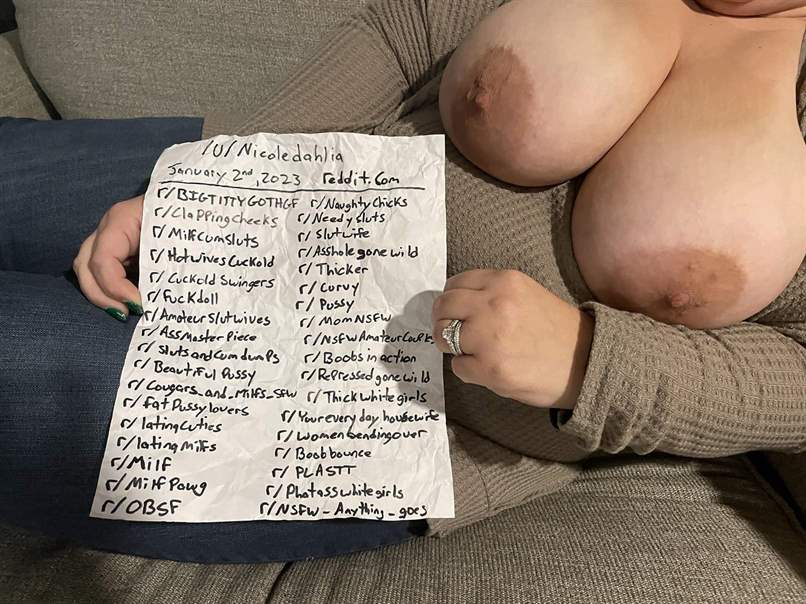 /U/Nicoledahlia
January 2nd, 2023 reddit.Com
r/BIGTITTYGOTHGF
r/ClaPPingcheeks
r/MilfCumsluts
r/HotwivesCuckold
r/Cuckold Swingers
r/fuckdoll
r/AmateurSlutwives
r/AssMasterPiece
r/SlutsandCumdumPs
r/Beautiful Pussy
r/Cougars_and_Milfs_SFW
r/fatPussylovers
r/latingCuties
r/latingMilfs
r/Milf
r/MilfPawg
r/OBSF
r/NaughtyChicks
r/Needysluts
r/Slutwife
r/Assholegonewild
r/Thicker
r/Curvy
r/Pussy
r/MomNSFW
r/NSFWAmateurCouPles
r/Boobs in action
r/Repressedgonewild
r/Thickwhitegirls
r/Your every day housewife
r/Womenbendingover
r/Boobbounce
r/PLASTT
r/Phatasswhitegirls
r/NSFW_Anything_goes